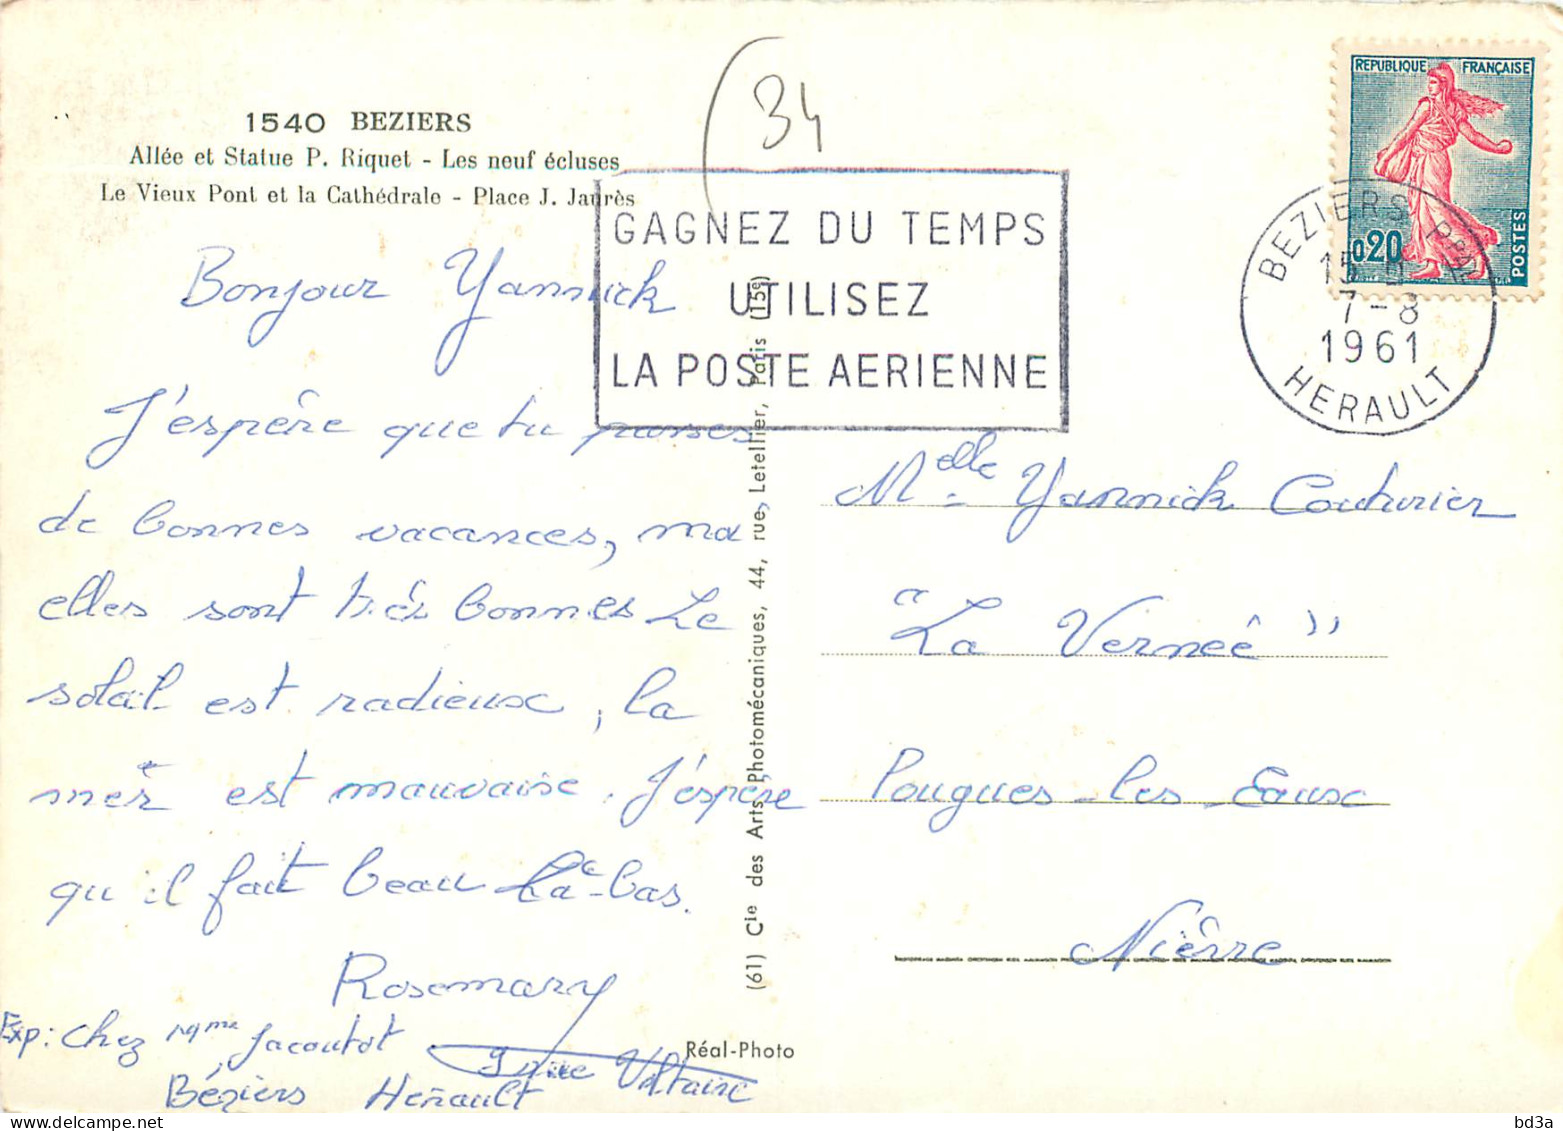 34
1540 BEZIERS
Allée et Statue P. Riquet - Les neuf écluses
Le Vieux Pont et la Cathédrale - Place J. Jaurès
REPUBLIQUE FRANÇAISE
0,20
POSTES
GAGNEZ DU TEMPS
UTILISEZ
LA POSTE AERIENNE
BEZIERS PPAL
15 H
7-8
1961
HERAULT
Bonjour Yannick
J'espère que tu passes
de bonnes vacances, ma
elles sont très bonnes Le
soleil est radieux, la
mèr est mauvaise. J'espère
qu'il fait beau là-bas.
Rosemary
Exp: Chez Mme Jacoutot
rue Voltaire
Béziers Hérault
(61) Cie des Arts Photomécaniques, 44, rue Letellier, Paris (15e)
Réal-Photo
Melle Yannick Couturier
"La Verneê"
Pougues-les-Eaux
Nièvre
bd3a